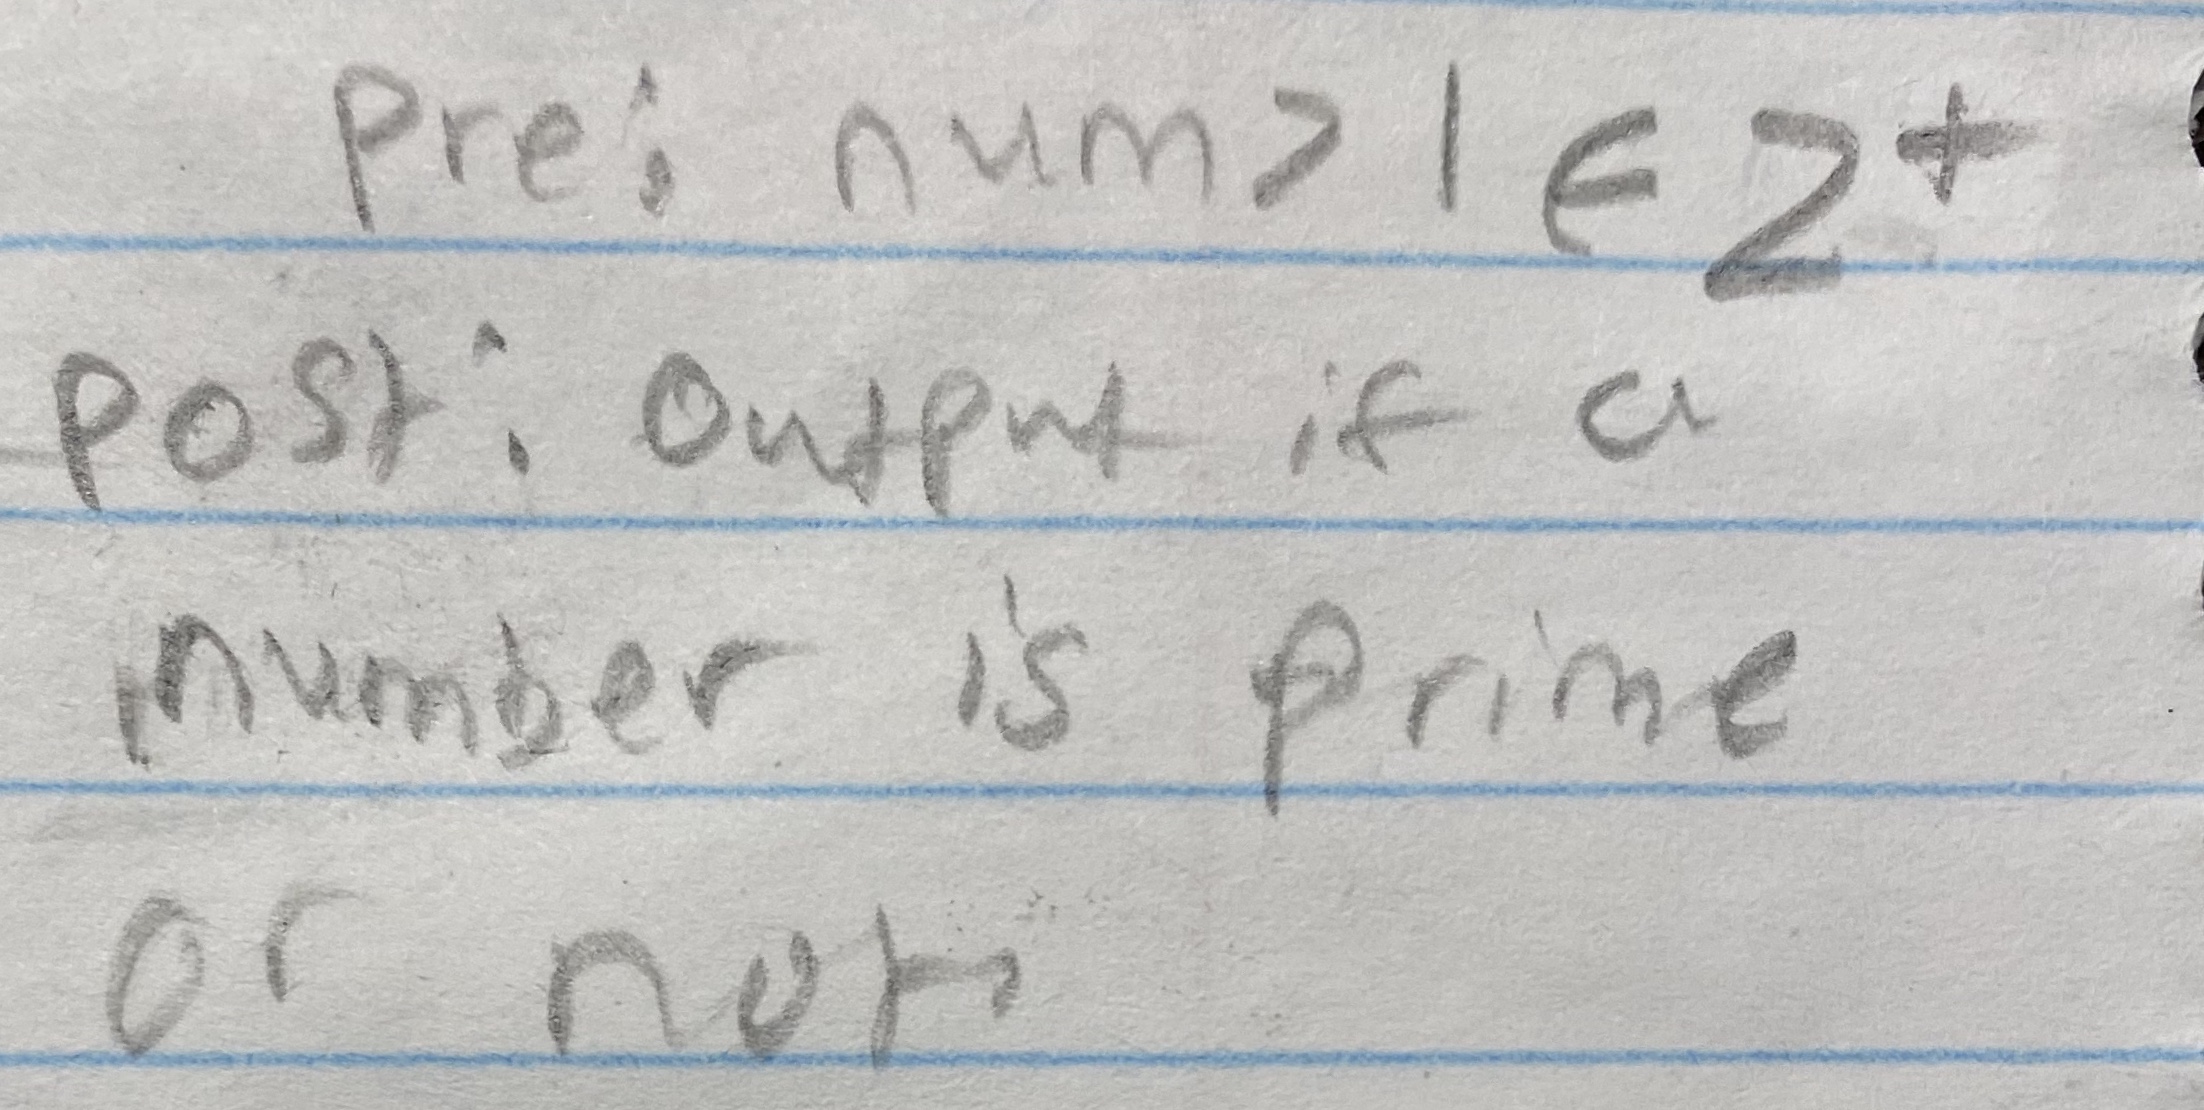 Pre: num > 1 ∈ Z+
post: Output if a
number is prime
or not.